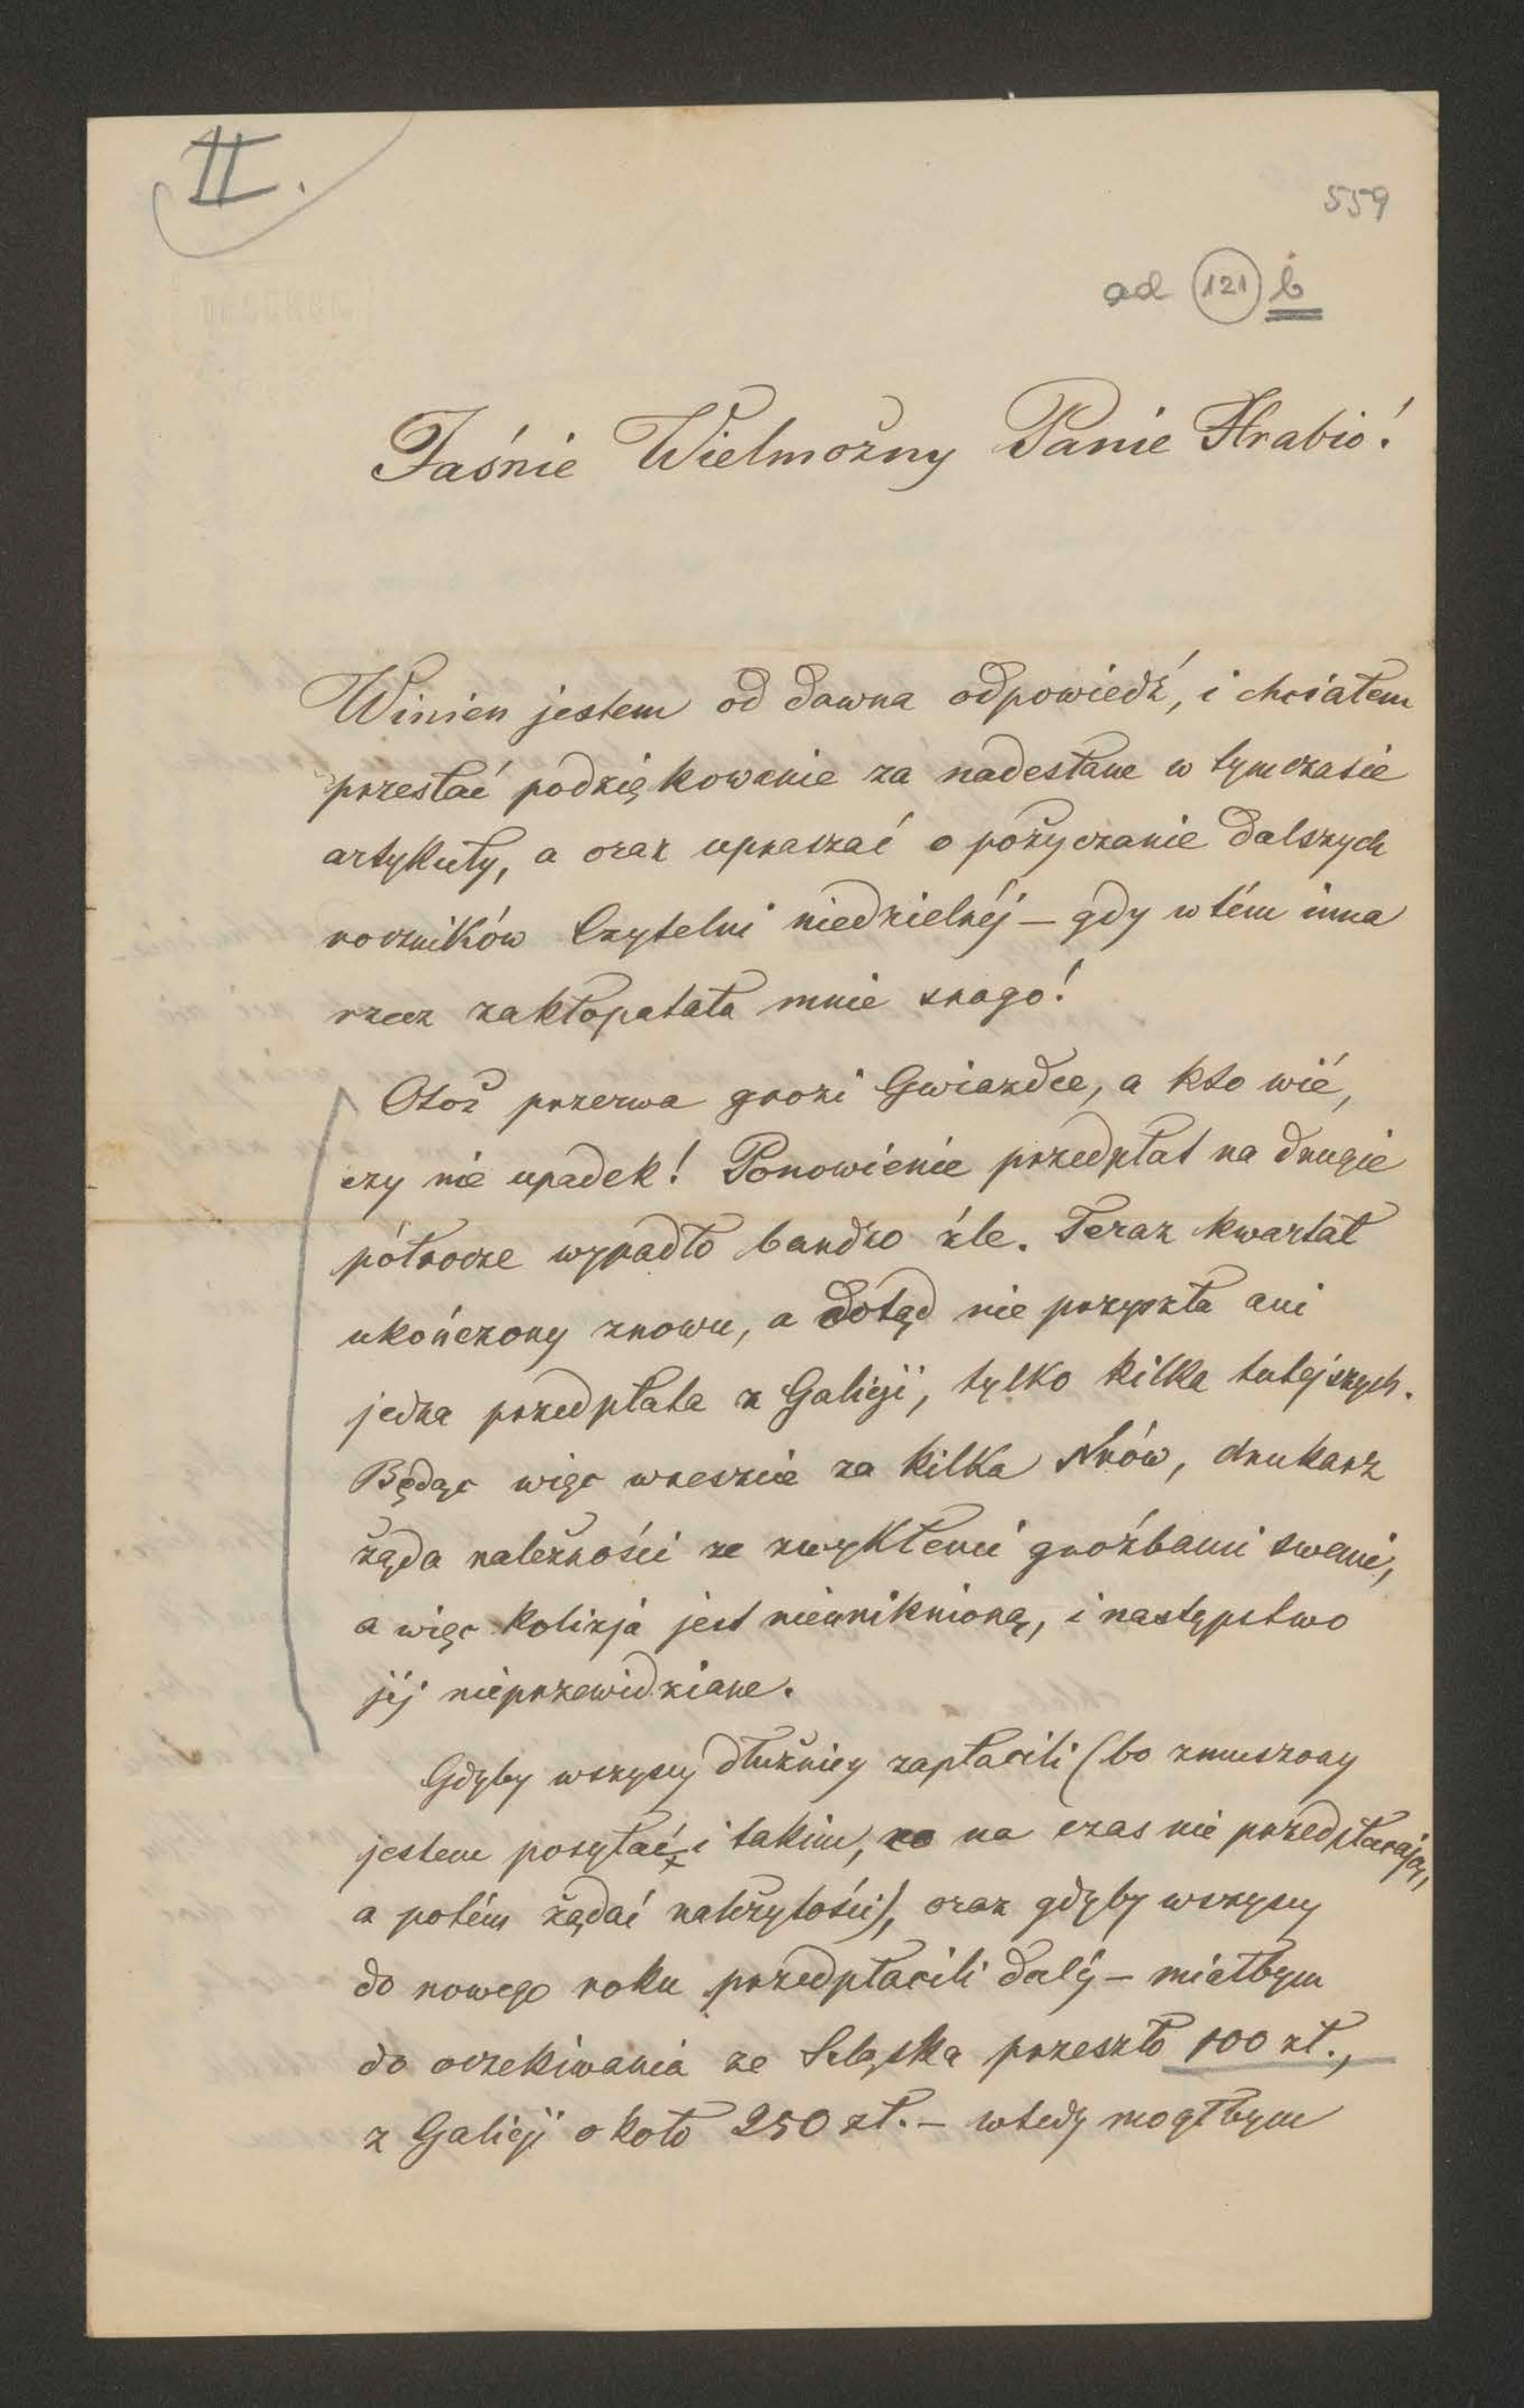 II.
559
ad 121 b
Jaśnie Wielmożny Panie Hrabio!
Winien jestem od dawna odpowiedź, i chciałem
przesłać podziękowanie za nadesłane w tymczasie
artykuły, a oraz upraszać o pożyczanie dalszych
roczników Czytelni niedzielnéj – gdy wtém inna
rzecz zakłopatała mnie srogo!
Otoż przerwa grozi Gwiazdce, a kto wié,
czy nie upadek! Ponowienie przedpłat na drugie
półrocze wypadło bardzo źle. Teraz kwartał
ukończony znowu, a dotąd nie przyszła ani
jedna przedpłata z Galicji, tylko kilka tutejszych.
Będąc więc wreszcie za kilka Nrów, drukarz
żąda należności ze zwykłemi groźbami swemi,
a więc kolizja jest nieuniknioną, i następstwo
jéj nieprzewidziane.
Gdyby wszyscy dłużnicy zapłacili (bo zmuszony
jestem posyłać i takim, co na czas nie przedpłacają,
a potém żądać należytości), oraz gdyby wszyscy
do nowego roku przedpłacili daléj – miałbym
do oczekiwania ze Szląska przeszło 100 zł.,
z Galicji około 250 zł. – wtedy mogłbym